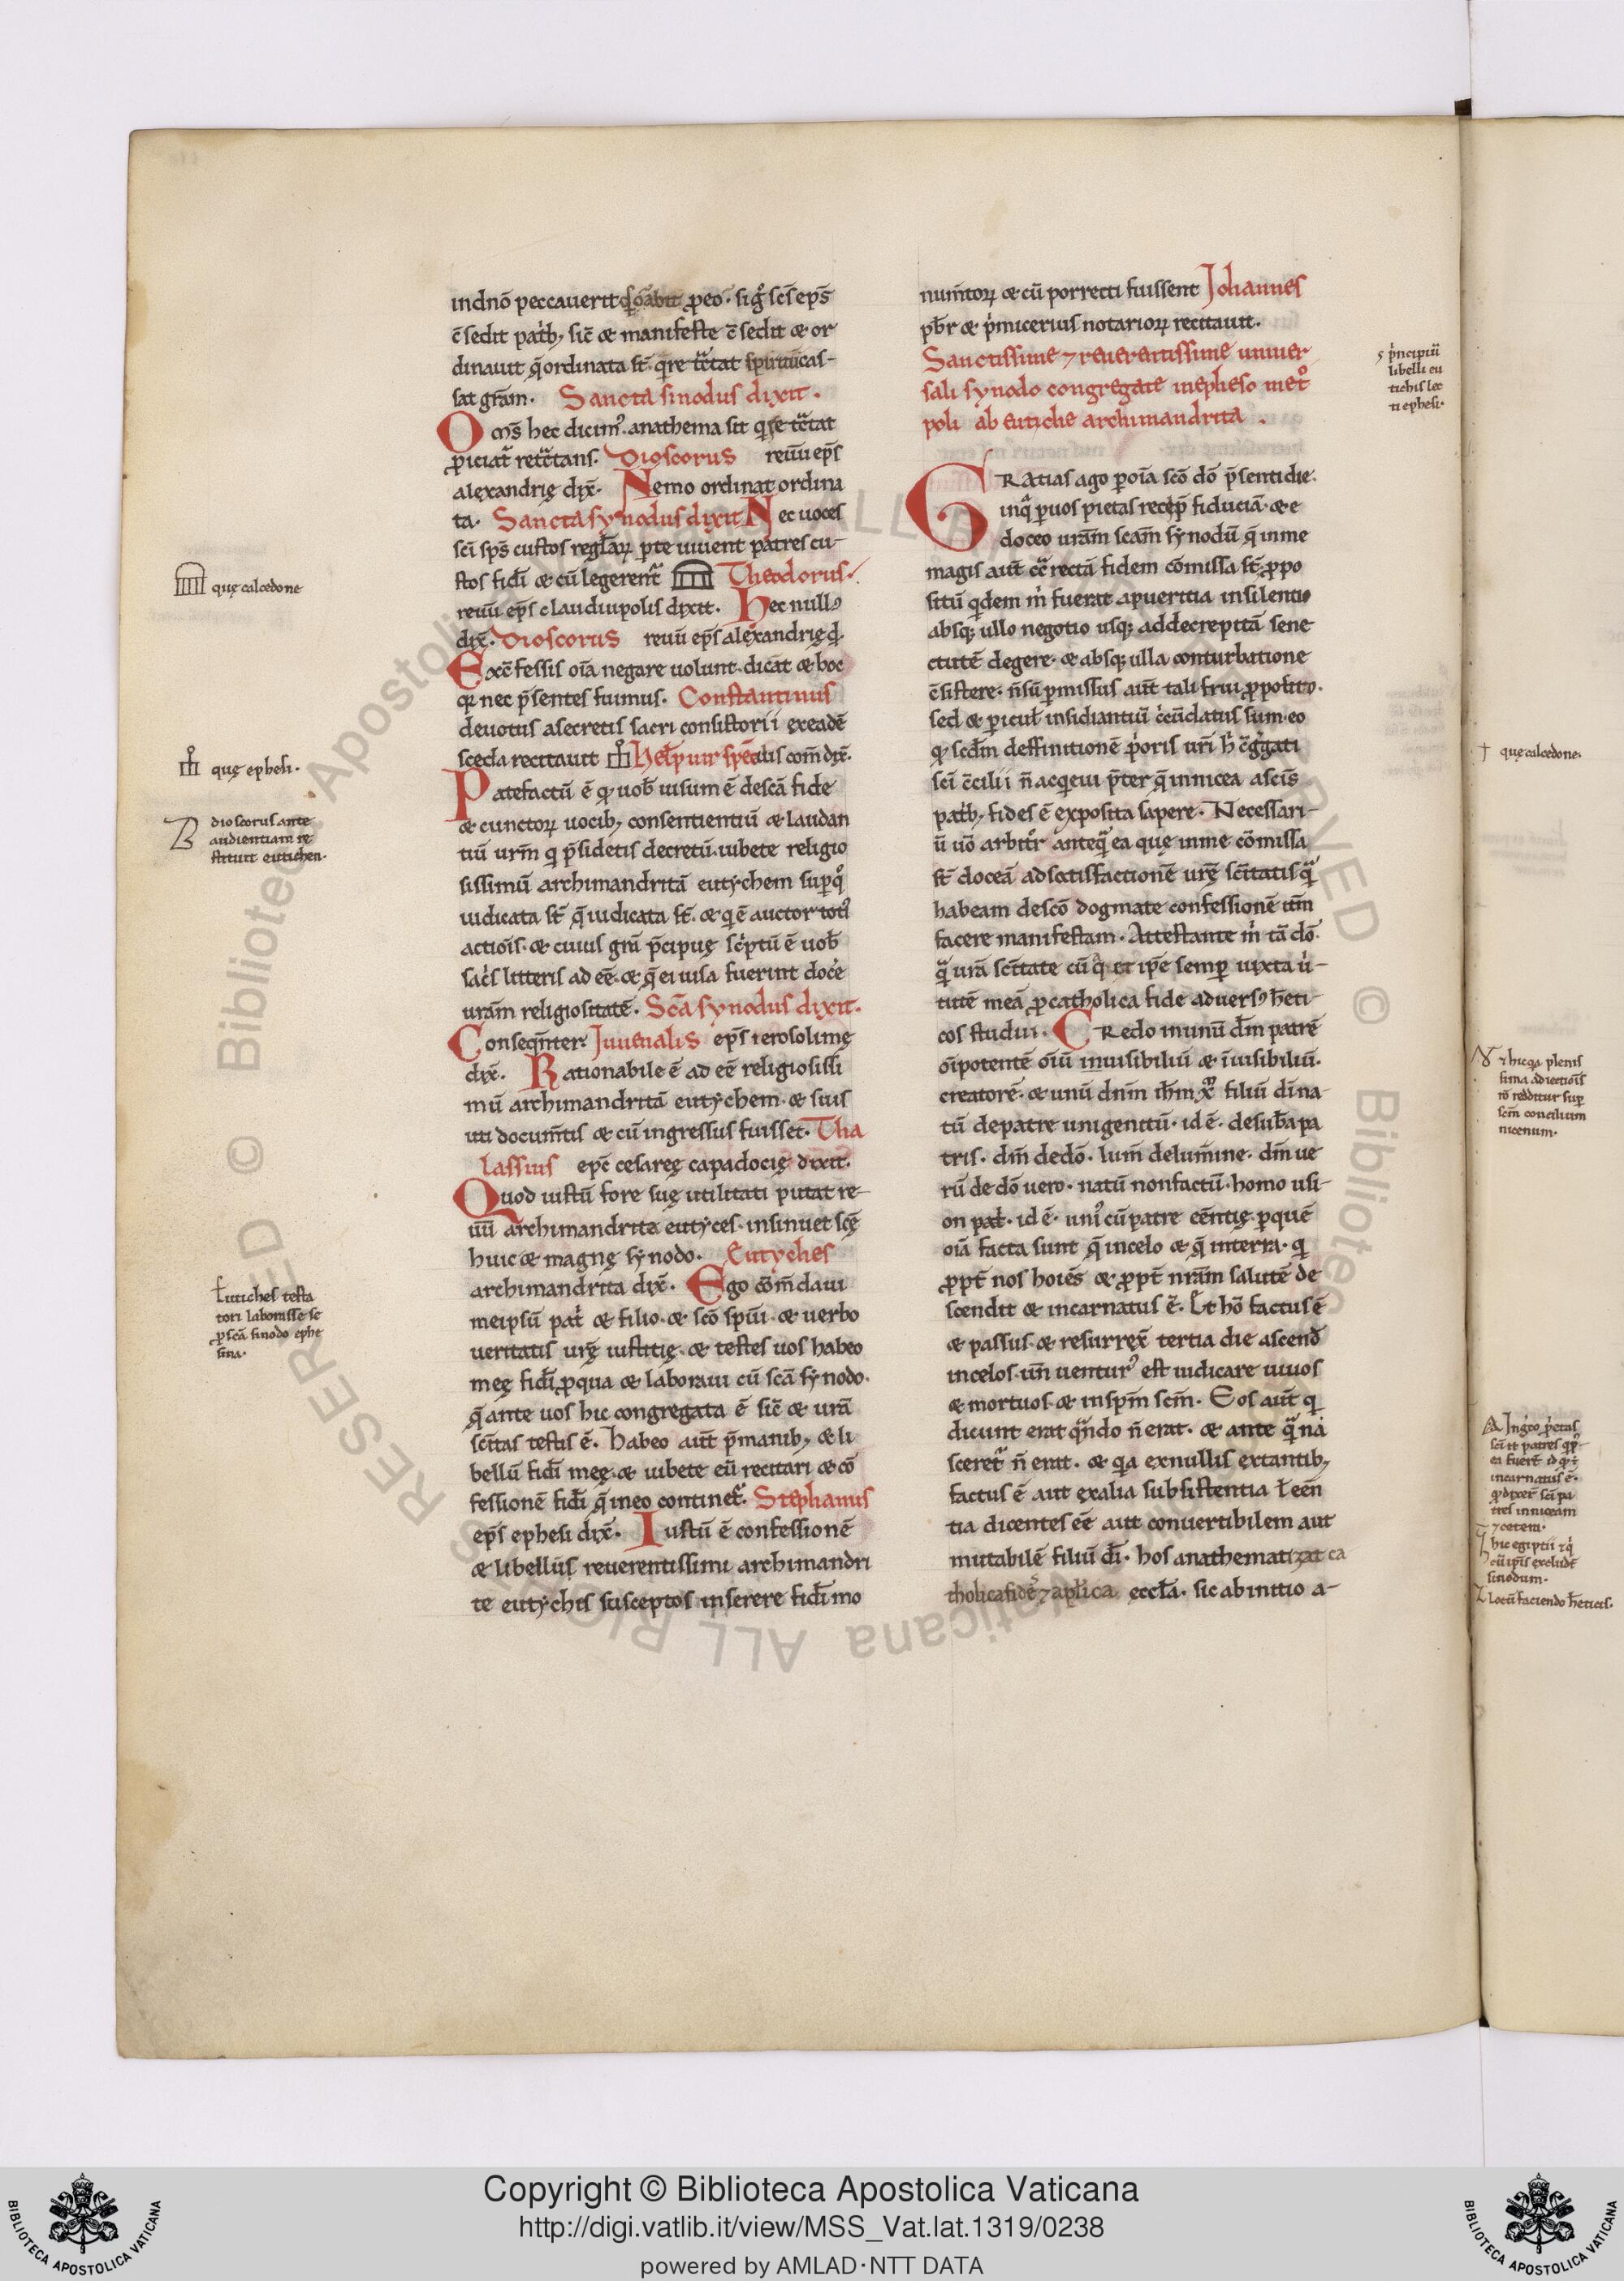 indnō peccauerit q̄s orabit ꝓeo. sigͦ scs̄ eps̄
c̄sedit patb; sic̄ & manifeste c̄sedit & or
dinauit q̄ ordinata st̄. qͥre tc̄tat spiritū cas-
sat grām. Sancta sinodus dixit.
Oms̄ hec dicimꝰ. anathema sit qͥ se tc̄tat
ꝓiciatᷣ retc̄tans. Dioscorus reuū eps̄
alexandrię dix̄. Nemo ordinat ordina
ta. Sancta synodus dixit Nec uoces
scī sps̄ custos regl̄aꝝ ꝑte uiuent patres cu-
stos fidī & cū legerentᷣ Theodorus.
reuū eps̄ claudiupolis dixit. Hec nullꝰ
dix̄. Dioscorus reuū eps̄ alexandrię d̄.
Exc̄fessis oīa negare uolunt. dicāt & hoc
qꝛ nec p̄sentes fuimus. Constantinus
deuotus asecretis sacri consistorii exeadē
sceda recitauit Help̄ uir spectabilis com̄ dix̄.
Patefactū ē qꝫ uob̄ uisum ē descā fide
& cunctoꝝ uocib; consentientiū & laudan
tiū urm̄ qͥ p̄sidetis decretū. iubete religio
sissimū archimandritā eutychem sup̄ qͦ
iudicata st̄ q̄ iudicata st̄. & qͥ ē auctor totiꝰ
actiōis. & cuius gr̄a p̄cipuę sc̄ptū ē uob̄
sac̄s litteris ad eē. & q̄ ei uisa fuerint doc̄e
urām religiositatē. Scā synodus dixit.
Conseqn̄ter. Iuuenalis eps̄ ierosolimę
dix̄. Rationabile ē ad eē religiosissi
mū archimandritā eutychem & suis
uti docum̄tis & cū ingressus fuisset. Tha
lassius epc̄ cesaręę capadocię dixit.
Quod iustū fore suę utilitati putat re-
uū archimandrita eutyces. insinuet scę̄
huic & magnę synodo. Eutyches
archimandrita dix̄. Ego com̄daui
meipsū patͥ & filio. & scō spū. & uerbo
ueritatis urę̄ iustitię. & testes uos habeo
meę fidī ꝓqua & laboraui cū scā synodo.
q̄ ante uos hic congregata ē sic̄ & urā
scītas testis ē. habeo aut̄ p̄manib; & li
bellū fidī meę. & iubete eū recitari & cō
fessionē fidī q̄ ineo continetᷣ. Stephanus
eps̄ ephesi dix̄. Iustū ē confessionē
& libellūs reuerentissimi archimandri
te eutychis susceptos inserere fidī mo
num̄toꝝ & cū porrecti fuissent Iohannes
pbr̄ & pͥmicerius notarioꝝ recitauit.
Sanctissime ⁊ reuerentissime uniuer
sali synodo congregate inepheso metͦ
poli ab eutiche archimandrita.
GRatias ago ꝑoīa scō dō p̄senti die.
inqͣ ꝑuos pietas recep̄ fiduciā. & e
doceo urām scām synodū q̄ inme
magis aut̄ cc̄ rectā fidem cōmissa st̄. ꝓpo
sitū qͥdem m̄ fuerat apueritia insilentio
absq; ullo negotio usq; addecrepitā sene
ctutē degere. & absq; ulla conturbatione
c̄sistere. n̄sū ꝑmissus aut̄ tali frui ꝓposito.
sed & ꝑicul̄ insidiantiū cͥcūdatus sum. eo
qꝫ scdm̄ deffinitionē pͥoris urī h̄ c̄gͣgati
scī c̄cilii n̄ acqͥeui p̄ter q̄ innicea ascīs
patb; fides ē exposita sapere. Necessari-
ū uō arbitͦr anteqͣ ea quę inme cōmissa
st̄ doceā adsatisfactionē urę̄ scītatis qͣ
habeam descō dogmate confessionē um̄
facere manifestam. Attestante m̄ tā dō.
qͣ urā scītate cū qͥ & ip̄e semꝑ iuxta uͥ-
tutē meā ꝓcatholica fide aduersꝰ hēti-
cos studui. CRedo inunū dm̄ patrē
oīpotentē oīū inuisibiliū & īuisibiliū.
creatorē. & unū dnm̄ ih̄m xp̄m filiū dī na
tū depatre unigenitū. id ē. desub̄a pa
tris. dm̄ dedō. lum̄ delum̄ine. dm̄ ue
rū de dō uero. natū nonfactū. homo usi-
on pat̄. id ē. uniꝰ cūpatre ec̄ntię. ꝑquē
oīa facta sunt q̄ incelo & q̄ interra. qͥ
ꝓpt̄ nos hoīes & ꝓpt̄ nrām salutē de
scendit & incarnatus ē. & hō factus ē
& passus. & resurrex̄ tertia die ascend̄
incelos. un̄ uenturꝰ est iudicare uiuos
& mortuos. & inspm̄ scm̄. Eos aut̄ qͥ
dicunt erat qͣndo n̄ erat. & ante qͣ na
sceretᷣ n̄ erat. & qͥa exnullis extantib;
factus ē aut exalia subsistentia l̄ eēn
tia dicentes eē aut conuertibilem aut
mutabilē filiū dī. hos anathematizat ca
tholica fides ⁊ apl̄ica eccl̄a. sic abinitio a-
quę calcedone
quę ephesi.
dioscorus ante
audientiam re
stituit eutichen.
Eutiches testa
tori laborasse se
ꝓ scā sinodo ephe
sina.
pͥncipiū
libelli eu
tichis lec
ti ephesi.
quę calcedone.
⁊ hic qa plenis
sima adiectiōis
rō redditur suꝑ
scm̄ concilium
nicenum.
incarnatus ē.
⁊ cetera.
hic egiptii
sinodum.
Locū faciendo hēticis.
Copyright © Biblioteca Apostolica Vaticana
http://digi.vatlib.it/view/MSS_Vat.lat.1319/0238
powered by AMLAD·NTT DATA
BIBLIOTECA APOSTOLICA VATICANA
BIBLIOTECA APOSTOLICA VATICANA